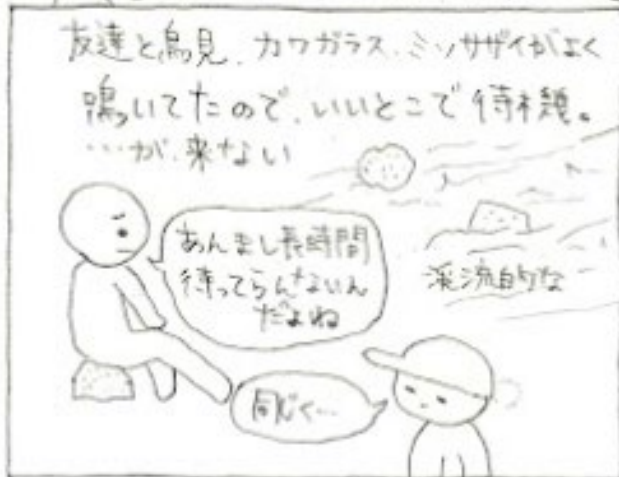 友達と鳥見、カワガラス、ミソサザイがよく
鳴いてたので、いいとこで待機。
…が、来ない
あんまし長時間
待ってらんないん
だよね
渓流的な
同じく…